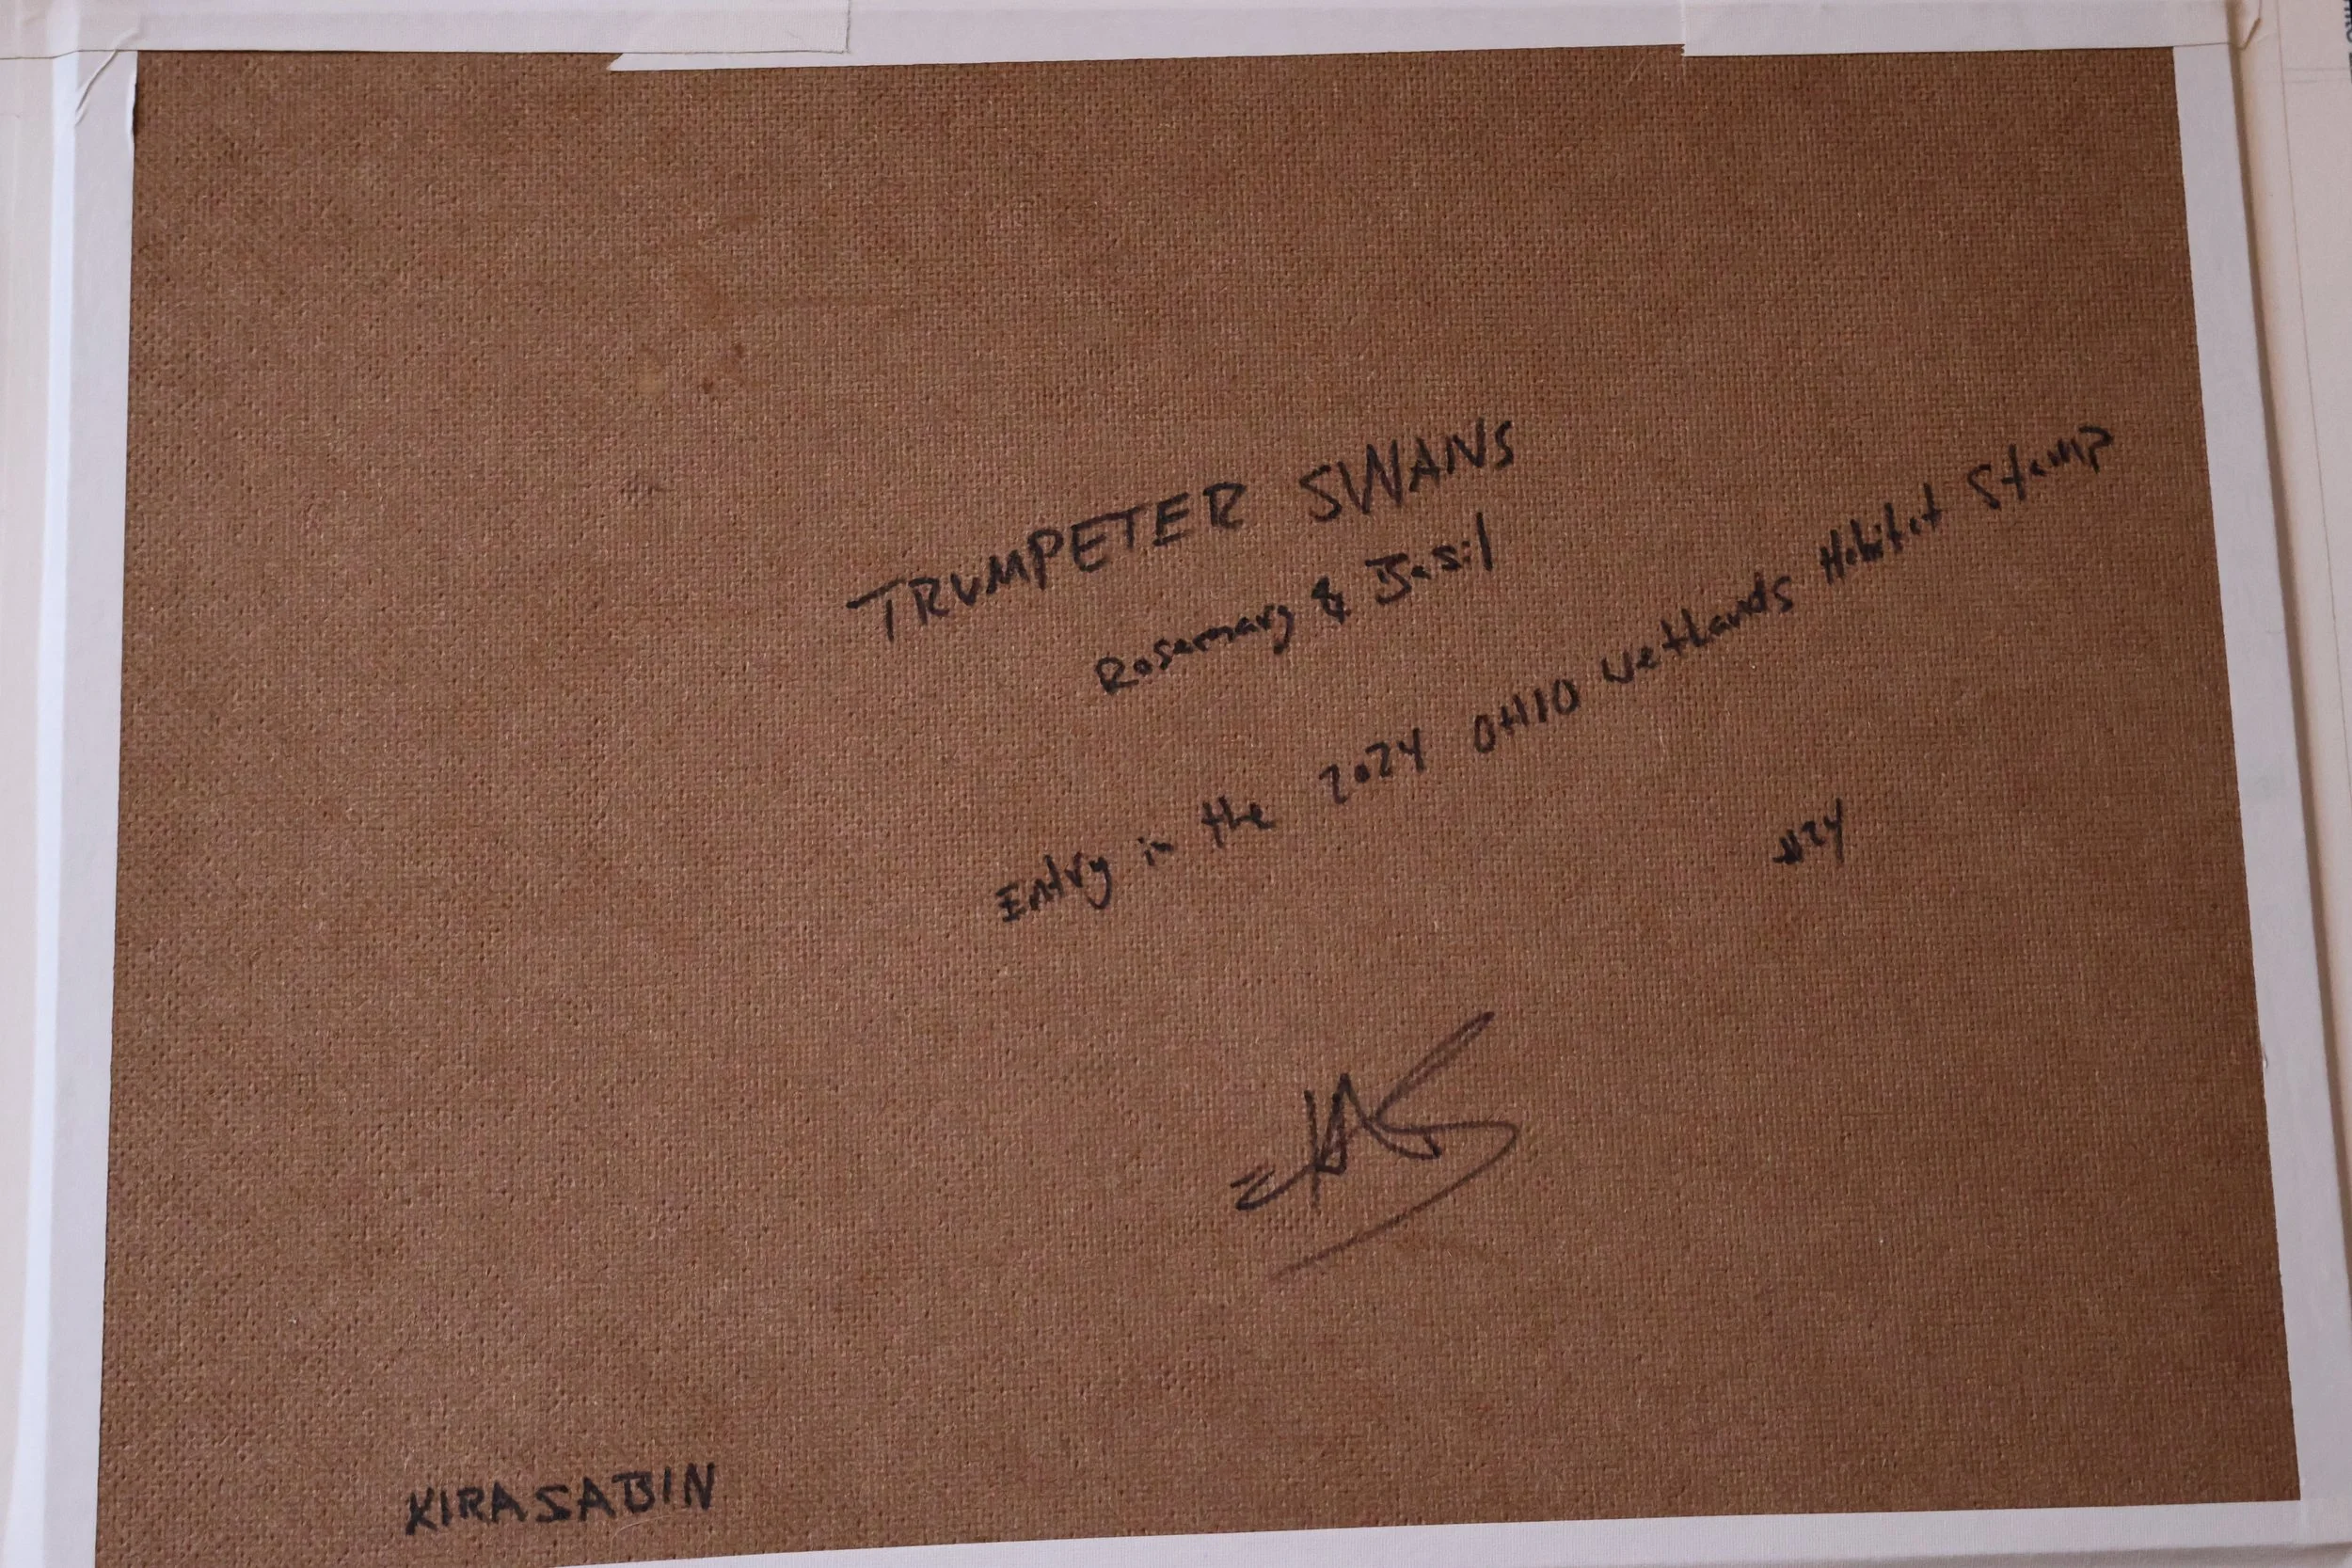 TRUMPETER SWANS
Rosemary & Basil
Entry in the 2024 OHIO Wetlands Habitat Stamp
#24
KIRA SABIN